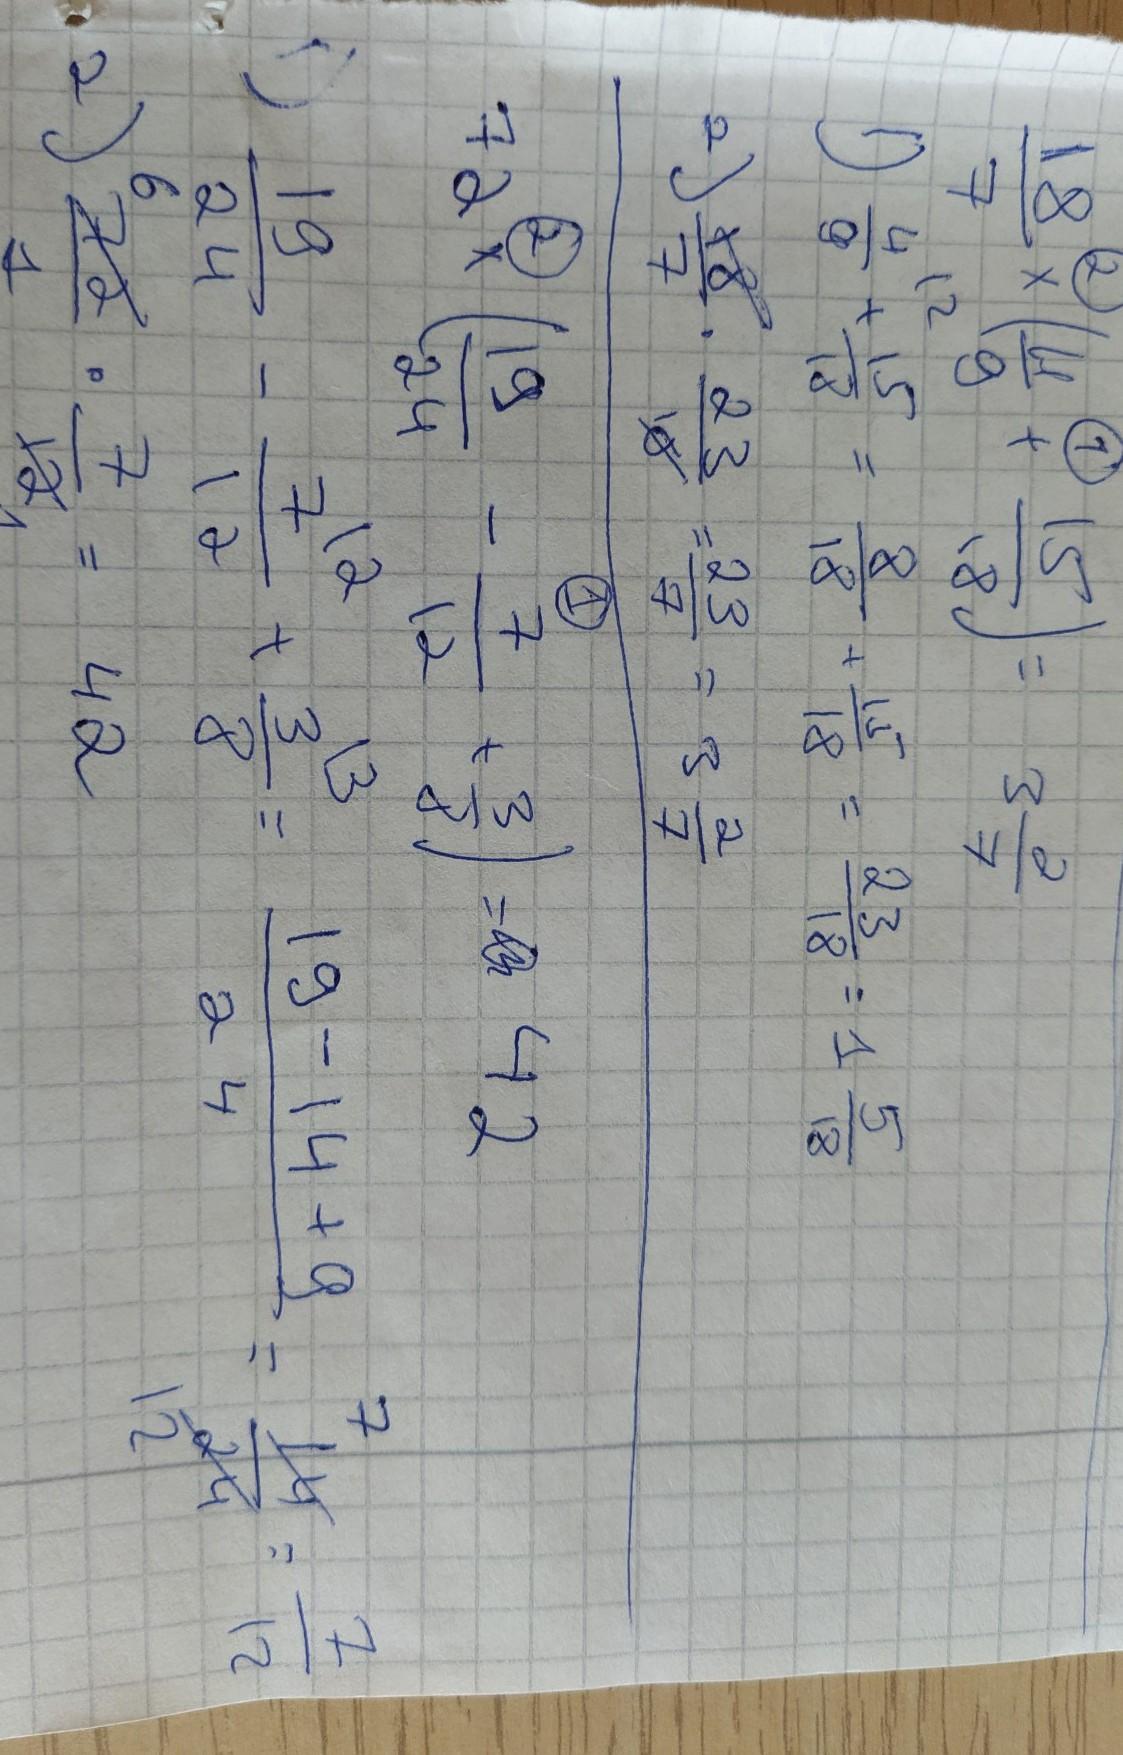 18/7 ② × (4/9 ① + 15/18) = 3 2/7
1) 4/9 \2 + 15/18 = 8/18 + 15/18 = 23/18 = 1 5/18
2) 18/7 · 23/18 = 23/7 = 3 2/7
72 ② × (19/24 - 7/12 ① + 3/8) = 42
1) 19/24 - 7/12 \2 + 3/8 \3 = 19-14+9/24 = 14/24 7 12 = 7/12
2) 6 72/1 · 7/12 1 = 42